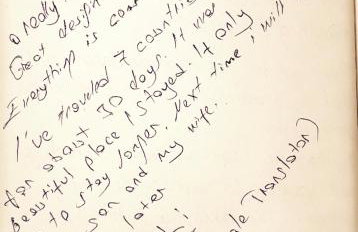 really
Great design
Everything is
I've traveled 7 countries
for about 30 days. It was
beautiful place I stayed. It only
to stay longer. Next time, I will
son and my wife..
later
Translator)